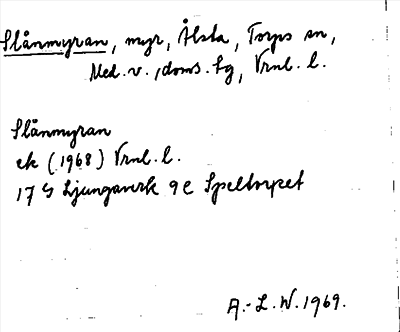 Slånmyran, myr, Ålsta, Torps sn,
Med. v., doms. sg, Vrnl. l.
Slånmyran
ek (1968) Vrnl. l.
17 G Ljungaverk 9 e Speltorpet
A.-L. W. 1969.